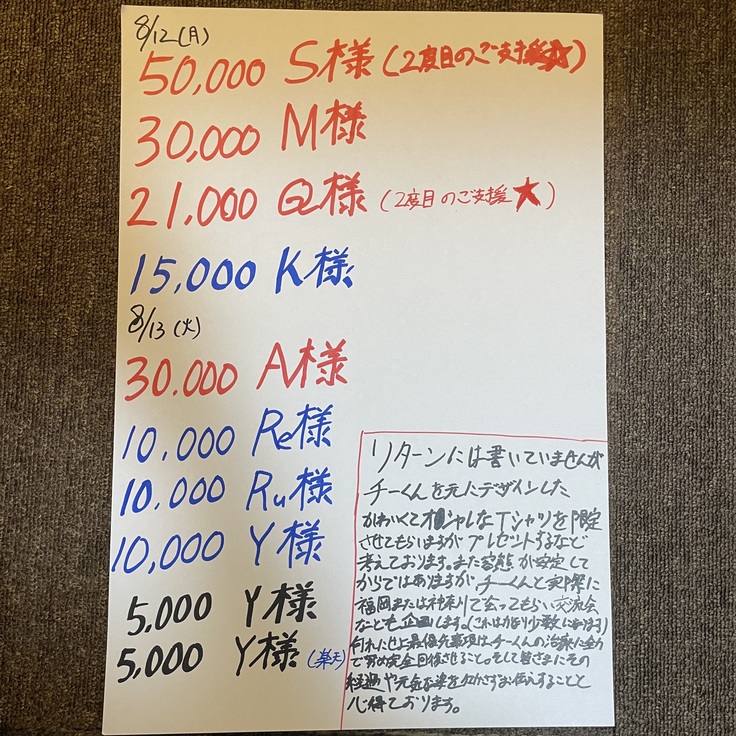 8/12(月)
50,000 S様(2度目のご支援★)
30,000 M様
21,000 Q様(2度目のご支援★)
15,000 K様
8/13(火)
30.000 A様
10,000 Re様
10.000 Ru様
10,000 Y様
5,000 Y様
5,000 Y様(楽天)
リターンには書いていませんが
チーくんを元にデザインした
かわいくてオシャレなTシャツを限定
させてもらいますがプレゼントするなど
考えております。また容態が安定して
からではありますがチーくんと実際に
福岡または神奈川で会ってもらい交流会
なども企画します。(これはかなり少数になります)
何れにせよ最優先事項はチーくんの治療に全力
で努め完全回復させること。そして皆さまにその
経過や元気な姿を欠かさずお伝えすることと
心得ております。